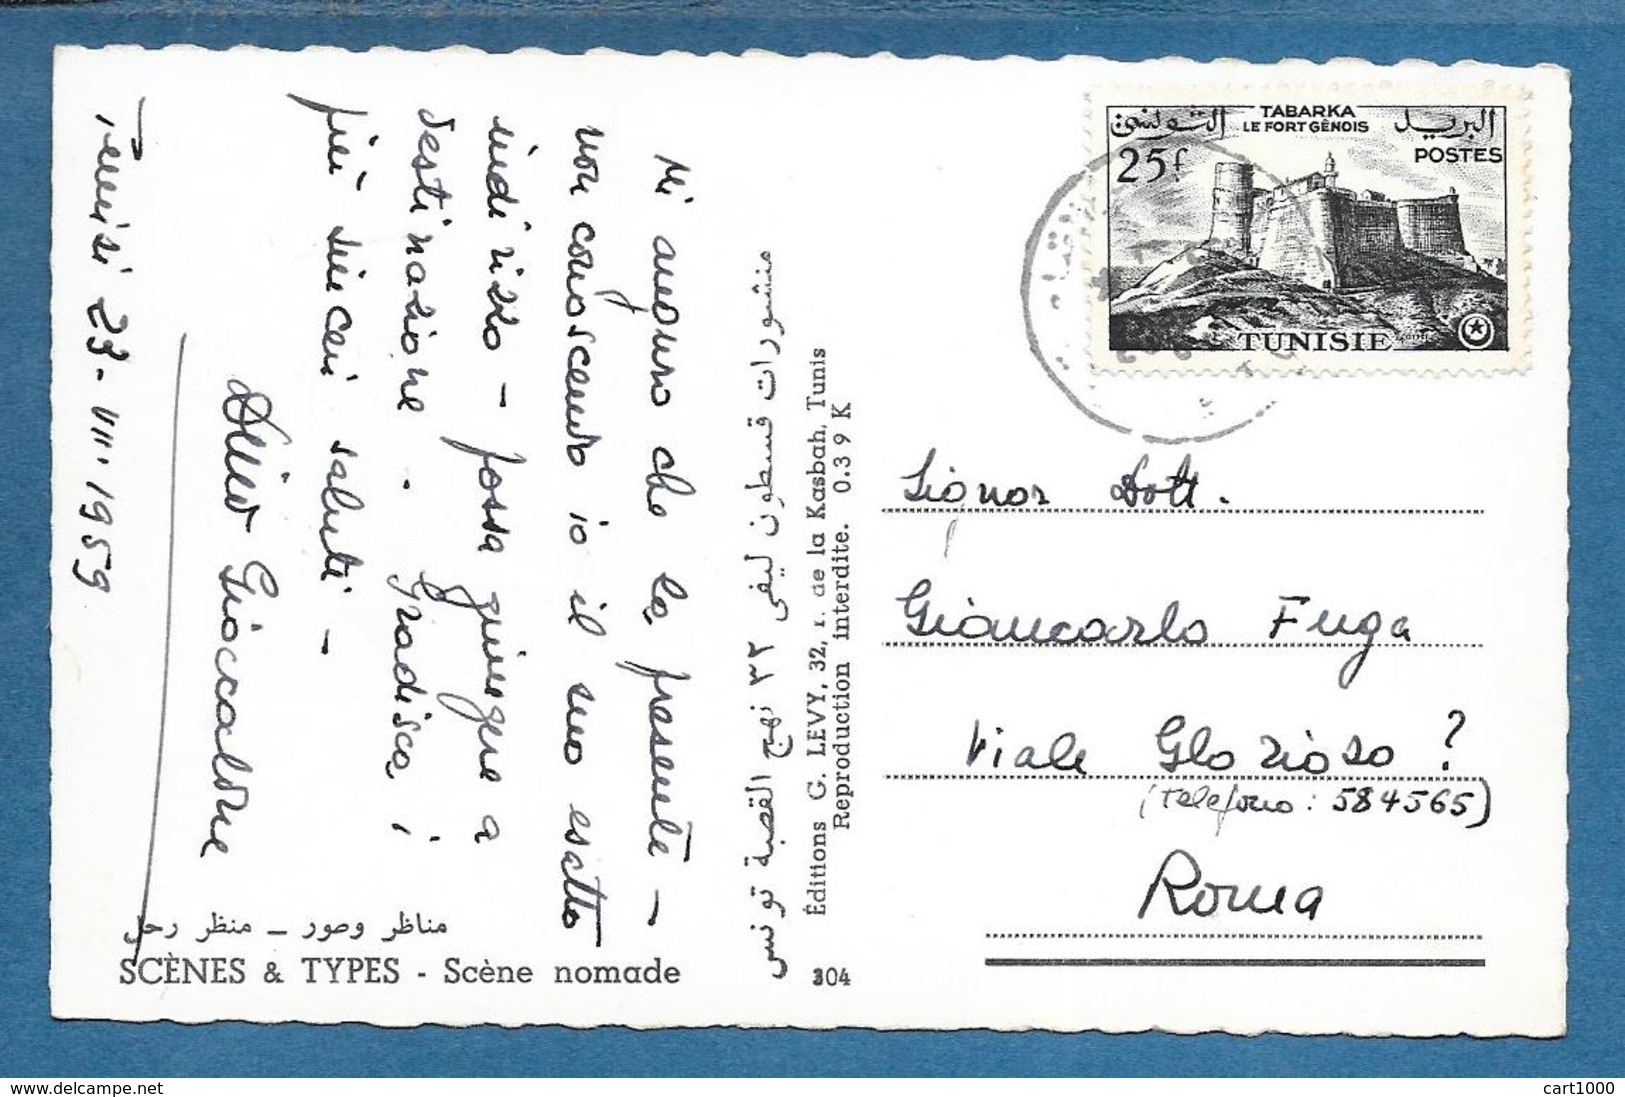 Tunisi 23-VIII-1959
Mi auguro che la presente -
non conoscendo io il suo esatto
indirizzo - possa giungere a
destinazione. Gradisca i
più sinceri saluti -
Giaccalone
مناظر وصور – منظر رحل
SCÈNES & TYPES - Scène nomade
منشورات قسطون ليفي ٣٢ نهج القصبة تونس
Éditions G. LEVY, 32, r. de la Kasbah, Tunis
Reproduction interdite. 0.3 9 K
304
البريد التونسي
TABARKA
LE FORT GÊNOIS
POSTES
25f
TUNISIE
Signor Dott.
Giancarlo Fuga
Viale Glorioso ?
(Telefono: 584565)
Roma
www.delcampe.net
cart1000